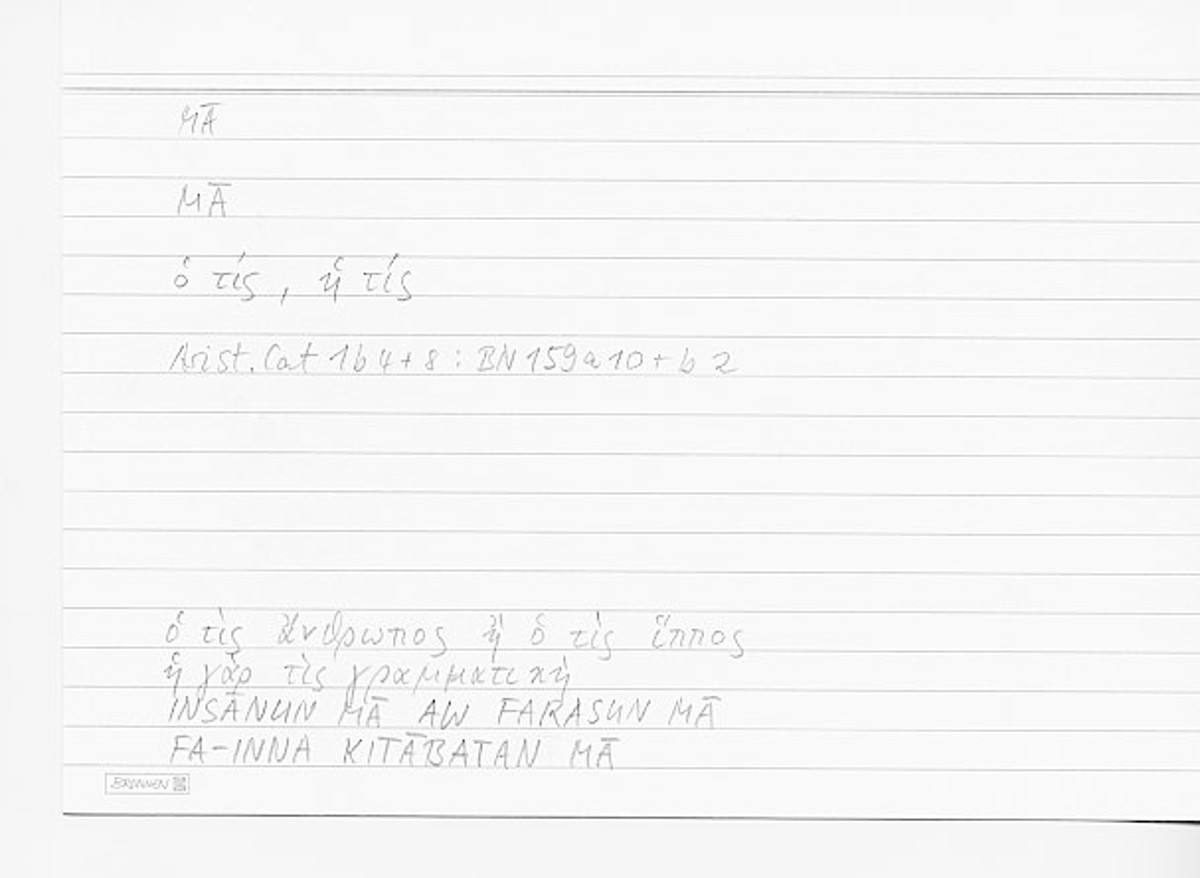 MĀ
MĀ
ὁ τίς, ἡ τίς
Arist. Cat 1b4+8: BN 159a10+b2
ὁ τὶς ἄνθρωπος ἢ ὁ τὶς ἵππος
ἡ γὰρ τὶς γραμματικὴ
INSĀNUN MĀ AW FARASUN MĀ
FA-INNA KITĀBATAN MĀ
BRUNNEN